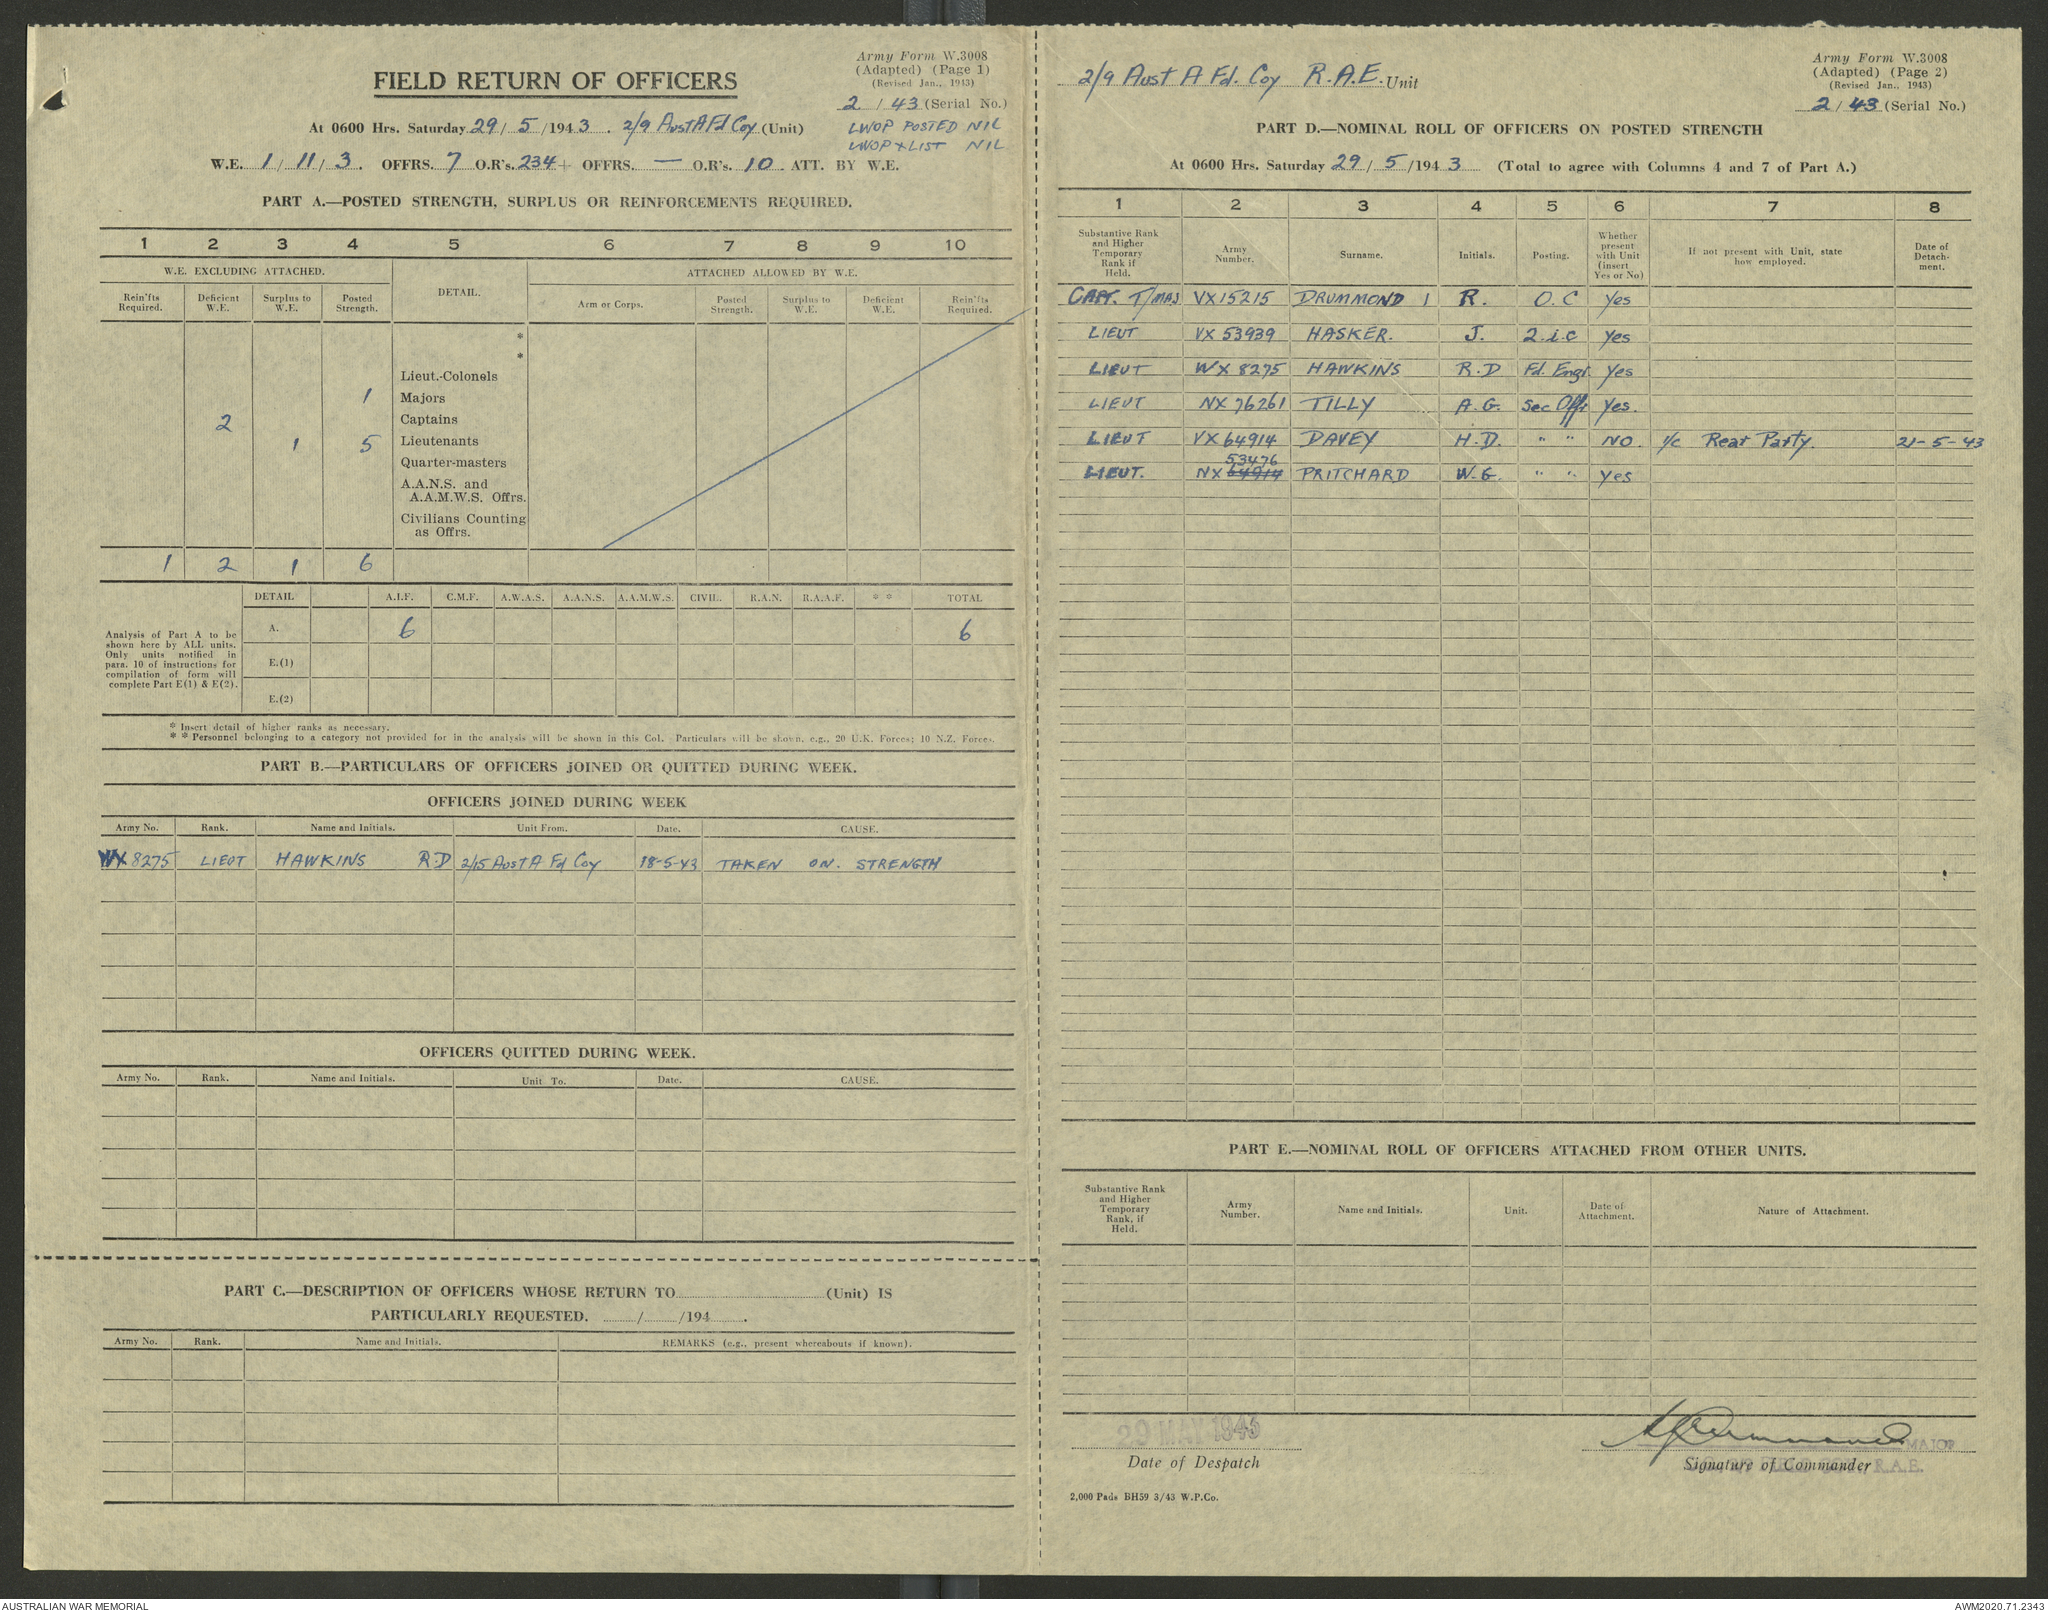 Army Form W.3008
(Adapted) (Page 1)
(Revised Jan., 1943)
FIELD RETURN OF OFFICERS
2 / 43 (Serial No.)
At 0600 Hrs. Saturday 29 / 5 /1943. 2/9 Aust A Fd Coy (Unit)
LWOP POSTED NIL
LWOP X LIST NIL
W.E. 1 / 11 / 3. OFFRS. 7 O.R's. 234 + OFFRS. — O.R's. 10. ATT. BY W.E.
PART A.—POSTED STRENGTH, SURPLUS OR REINFORCEMENTS REQUIRED.
1 2 3 4 5 6 7 8 9 10
W.E. EXCLUDING ATTACHED. DETAIL. ATTACHED ALLOWED BY W.E.
Rein'fts Required. Deficient W.E. Surplus to W.E. Posted Strength. Arm or Corps. Posted Strength. Surplus to W.E. Deficient W.E. Rein'fts Required.
*
*
Lieut.-Colonels
1 Majors
2 Captains
1 5 Lieutenants
Quarter-masters
A.A.N.S. and
A.A.M.W.S. Offrs.
Civilians Counting
as Offrs.
1 2 1 6
DETAIL A.I.F. C.M.F. A.W.A.S. A.A.N.S. A.A.M.W.S. CIVIL. R.A.N. R.A.A.F. * * TOTAL
Analysis of Part A to be
shown here by ALL units.
Only units notified in
para. 10 of instructions for
compilation of form will
complete Part E(1) & E(2).
A. 6 6
E.(1)
E.(2)
* Insert detail of higher ranks as necessary.
* * Personnel belonging to a category not provided for in the analysis will be shown in this Col. Particulars will be shown, e.g., 20 U.K. Forces; 10 N.Z. Forces.
PART B.—PARTICULARS OF OFFICERS JOINED OR QUITTED DURING WEEK.
OFFICERS JOINED DURING WEEK
Army No. Rank. Name and Initials. Unit From. Date. CAUSE.
WX 8275 LIEUT HAWKINS R.D 2/15 Aust A Fd Coy 18-5-43 TAKEN ON. STRENGTH
OFFICERS QUITTED DURING WEEK.
Army No. Rank. Name and Initials. Unit To. Date. CAUSE.
PART C.—DESCRIPTION OF OFFICERS WHOSE RETURN TO (Unit) IS
PARTICULARLY REQUESTED. / /194 .
Army No. Rank. Name and Initials. REMARKS (e.g., present whereabouts if known).
Army Form W.3008
(Adapted) (Page 2)
(Revised Jan., 1943)
2/9 Aust A Fd. Coy R.A.E. Unit
2 / 43 (Serial No.)
PART D.—NOMINAL ROLL OF OFFICERS ON POSTED STRENGTH
At 0600 Hrs. Saturday 29 / 5 /1943 (Total to agree with Columns 4 and 7 of Part A.)
1 2 3 4 5 6 7 8
Substantive Rank and Higher Temporary Rank if Held. Army Number. Surname. Initials. Posting. Whether present with Unit (insert Yes or No) If not present with Unit, state how employed. Date of Detach-ment.
CAPT. T/MAJ VX 15215 DRUMMOND 1 R. O.C Yes
LIEUT VX 53939 HASKER. J. 2.i.c Yes
LIEUT WX 8275 HAWKINS R.D Fd. Engr. Yes
LIEUT NX 76261 TILLY A.G. Sec Offr Yes.
LIEUT VX 64914 DAVEY H.D. " " NO. i/c Rear Party. 21-5-43
53476
LIEUT. NX 64914 PRITCHARD W.G. " " Yes
PART E.—NOMINAL ROLL OF OFFICERS ATTACHED FROM OTHER UNITS.
Substantive Rank and Higher Temporary Rank, if Held. Army Number. Name and Initials. Unit. Date of Attachment. Nature of Attachment.
29 MAY 1943
MAJOR
Date of Despatch
Signature of Commander
R.A.E.
2,000 Pads BH59 3/43 W.P.Co.
AUSTRALIAN WAR MEMORIAL
AWM2020.71.2343